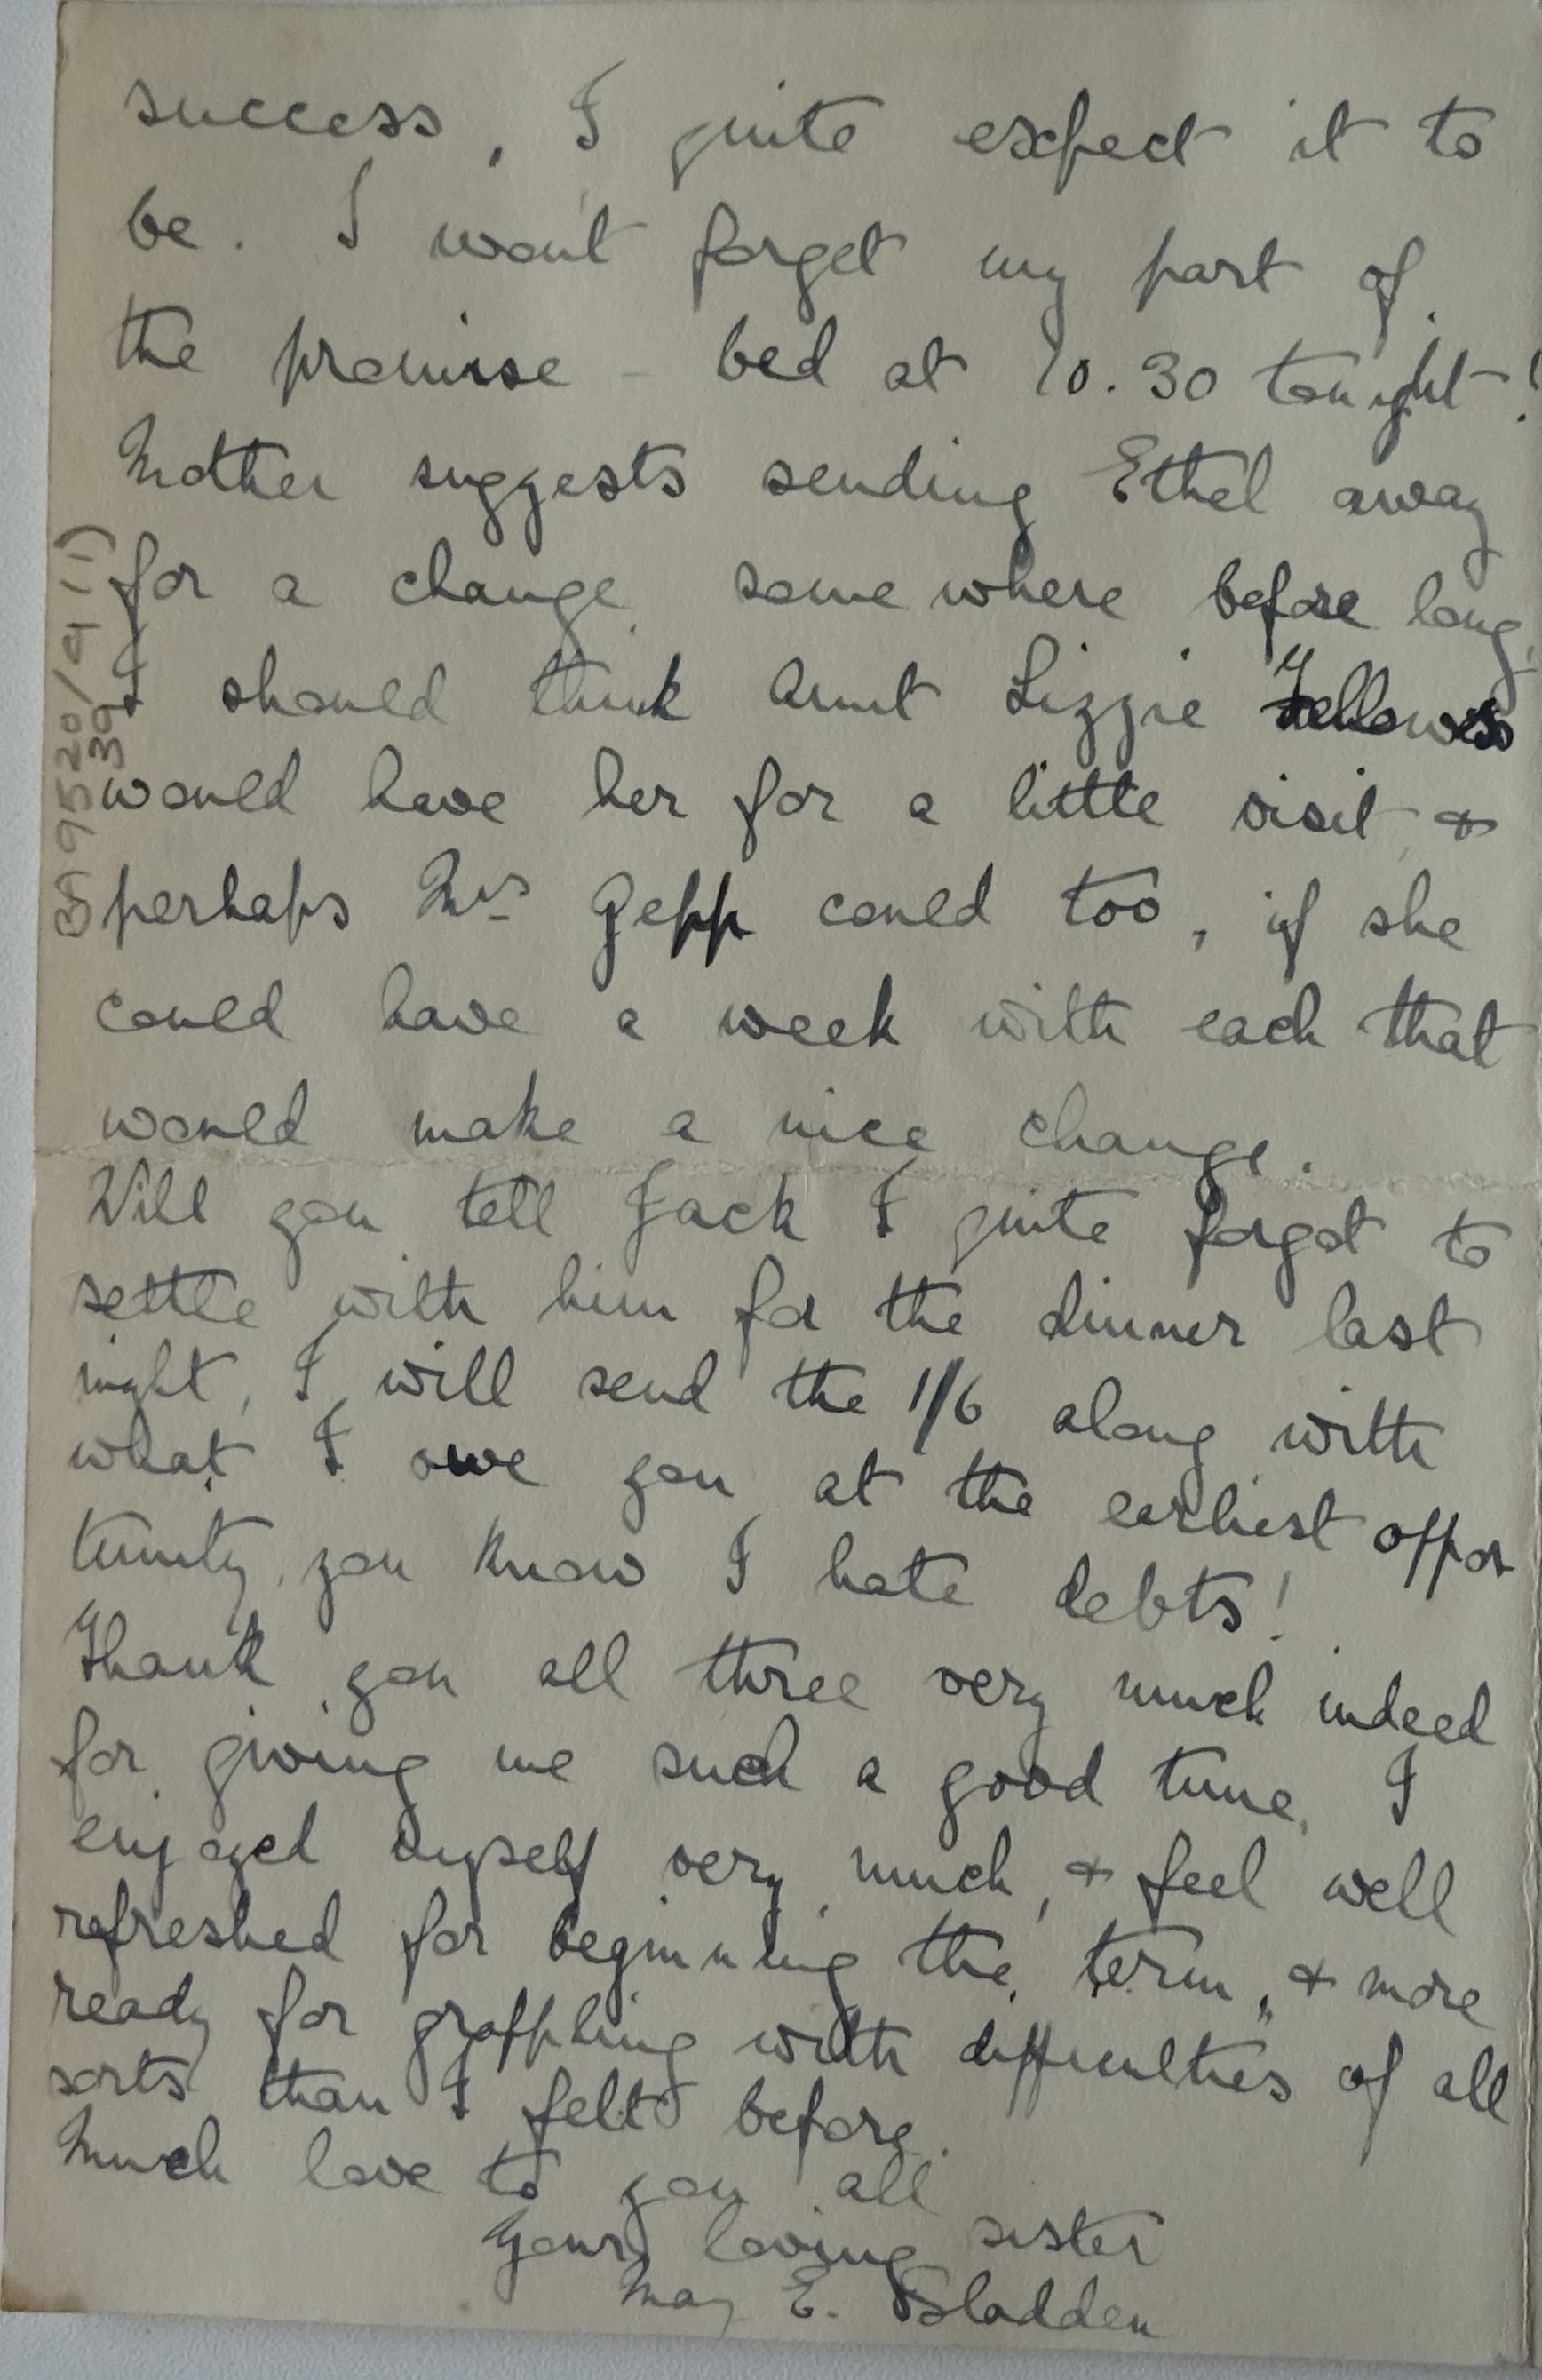 success, I quite expect it to
be. I won't forget my part of
the promise - bed at 10.30 tonight!
Mother suggests sending Ethel away
for a change somewhere before long,
I should think Aunt Lizzie Fellows
would have her for a little visit &
perhaps Mrs Gepp could too, if she
could have a week with each that
would make a nice change.
Will you tell Jack I quite forgot to
settle with him for the dinner last
night, I will send the 1/6 along with
what I owe you at the earliest oppor
tunity, you know I hate debts!
Thank you all three very much indeed
for giving me such a good time. I
enjoyed myself very much, & feel well
refreshed for beginning the term, & more
ready for grappling with difficulties of all
sorts than I felt before.
Much love to you all
Your loving sister
May E. Sladden
39